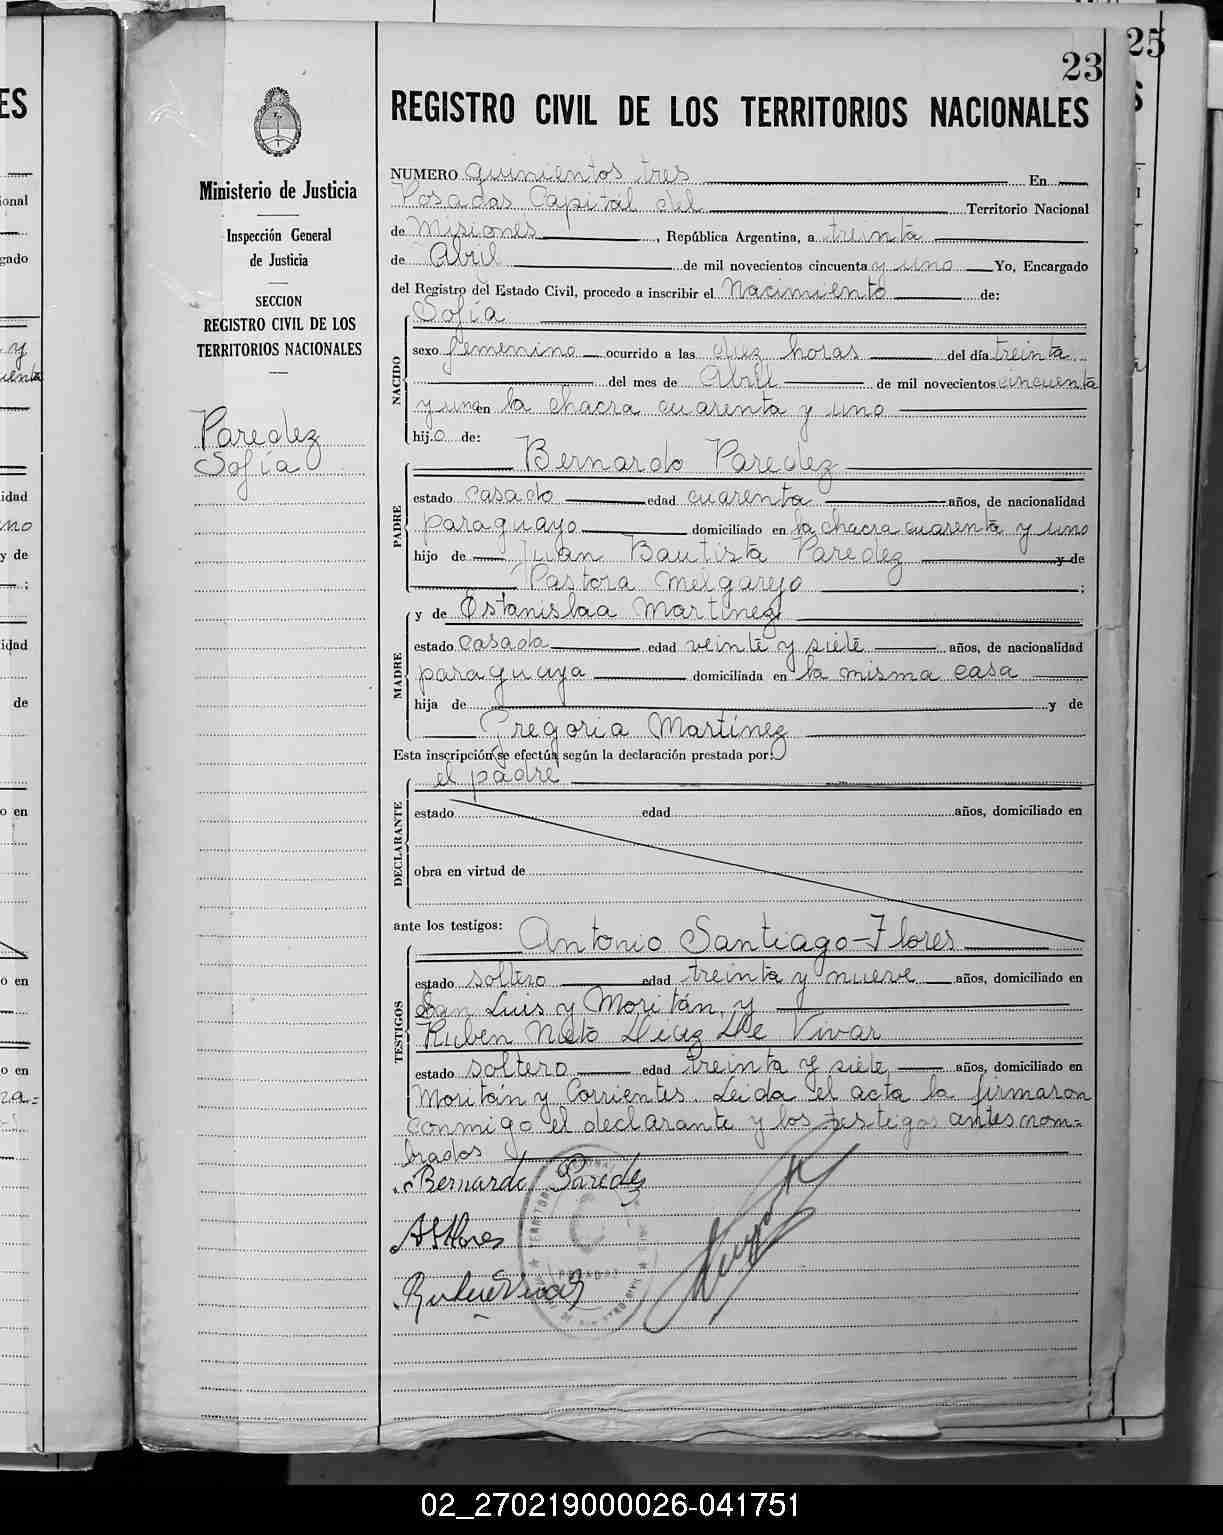 23
25
REGISTRO CIVIL DE LOS TERRITORIOS NACIONALES
Ministerio de Justicia
Inspección General
de Justicia
SECCION
REGISTRO CIVIL DE LOS
TERRITORIOS NACIONALES
Paredez
Sofía
NUMERO quinientos tres En
Posadas Capital del Territorio Nacional
de Misiones, República Argentina, a treinta
de Abril de mil novecientos cincuenta y uno Yo, Encargado
del Registro del Estado Civil, procedo a inscribir el Nacimiento de:
Sofía
NACIDO
sexo femenino ocurrido a las diez horas del día treinta
del mes de Abril de mil novecientos cincuenta
y uno en la chacra cuarenta y uno
hijo de:
Bernardo Paredez
PADRE
estado casado edad cuarenta años, de nacionalidad
paraguayo domiciliado en la chacra cuarenta y uno
hijo de Juan Bautista Paredez y de
Pastora Melgarejo ;
y de Estanislaa Martínez
MADRE
estado casada edad veinte y siete años, de nacionalidad
paraguaya domiciliada en la misma casa
hija de y de
Gregoria Martínez
Esta inscripción se efectúa según la declaración prestada por:
el padre
DECLARANTE
estado edad años, domiciliado en
obra en virtud de
ante los testigos:
Antonio Santiago Flores
TESTIGOS
estado soltero edad treinta y nueve años, domiciliado en
San Luis y Moritán, y
Rubén Díaz De Vivar
estado soltero edad treinta y siete años, domiciliado en
Moritán y Corrientes. Leida el acta la firmaron
conmigo el declarante y los testigos antes nom=
brados
Bernardo Paredez
ASFlores
02_270219000026-041751